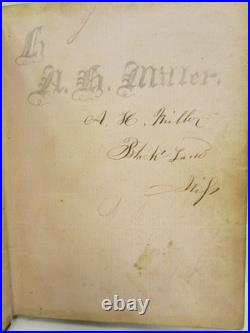 A. H. Miller.
A. H. Miller
Black Land
Miss